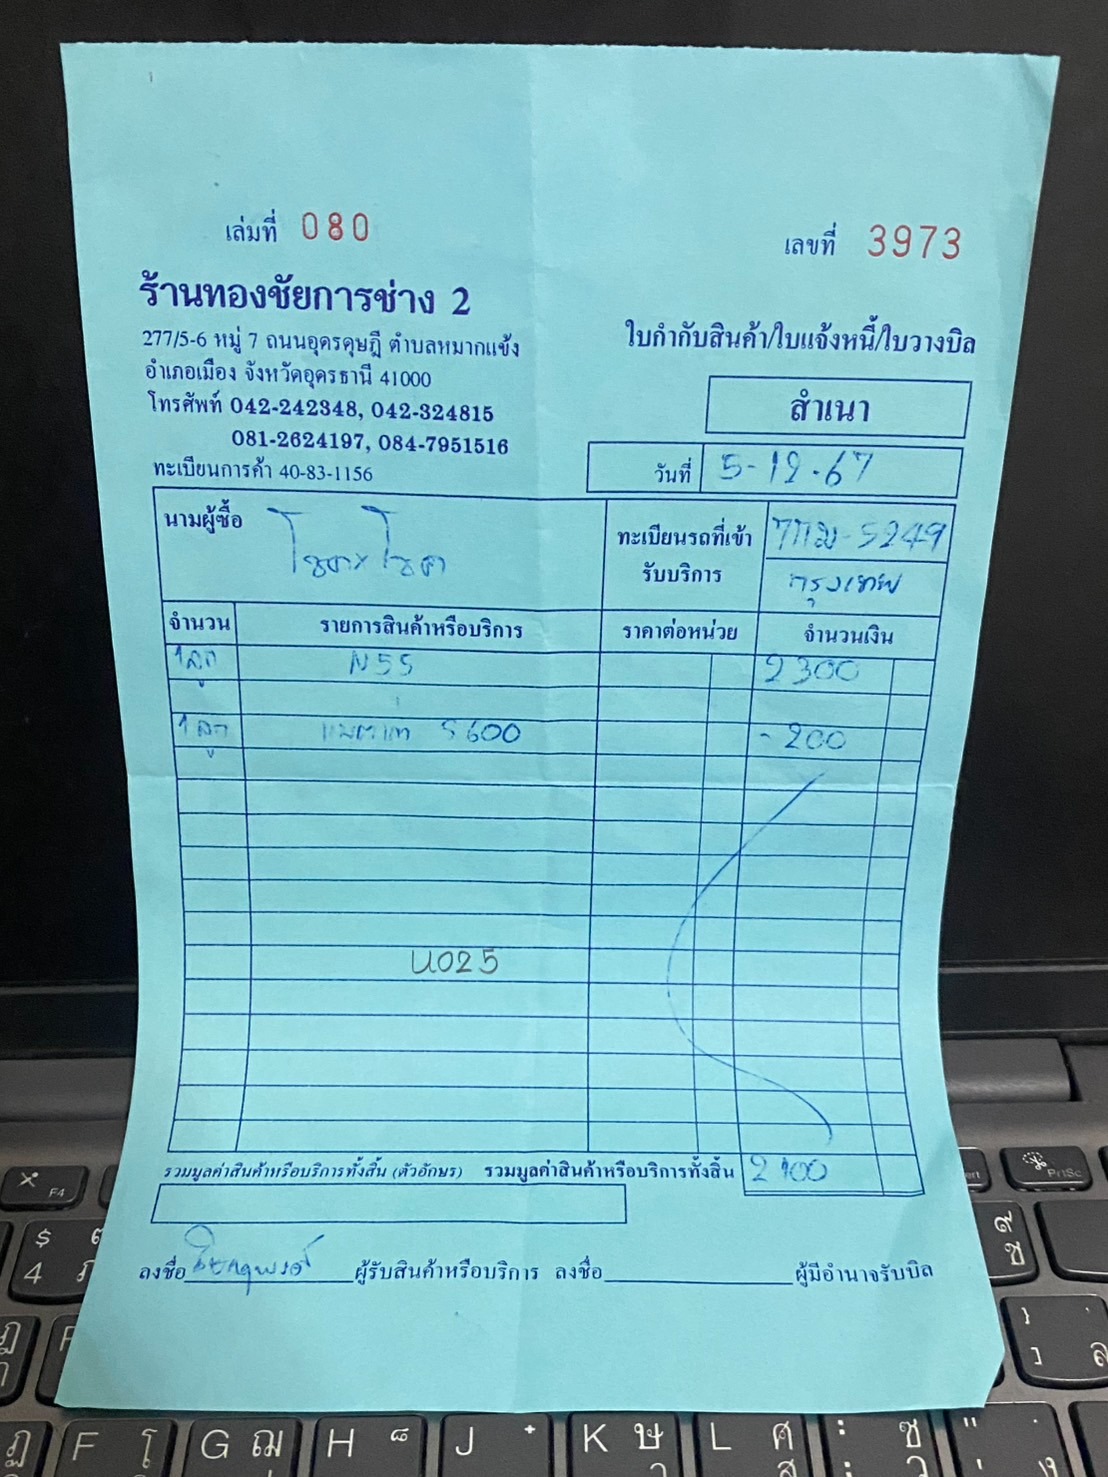 เล่มที่ 080
เลขที่ 3973
ร้านทองชัยการช่าง 2
277/5-6 หมู่ 7 ถนนอุดรดุษฎี ตำบลหมากแข้ง
อำเภอเมือง จังหวัดอุดรธานี 41000
โทรศัพท์ 042-242348, 042-324815
081-2624197, 084-7951516
ทะเบียนการค้า 40-83-1156
ใบกำกับสินค้า/ใบแจ้งหนี้/ใบวางบิล
สำเนา
วันที่ 5-12-67
นามผู้ซื้อ
ทะเบียนรถที่เข้า
รับบริการ
5249
กรุงเทพ
จำนวน รายการสินค้าหรือบริการ ราคาต่อหน่วย จำนวนเงิน
1 ลูก N55 2300
1 ลูก S600 -200
U025
รวมมูลค่าสินค้าหรือบริการทั้งสิ้น (ตัวอักษร) รวมมูลค่าสินค้าหรือบริการทั้งสิ้น 2100
ลงชื่อ ผู้รับสินค้าหรือบริการ ลงชื่อ ผู้มีอำนาจรับบิล
F4
PrtSc
$
4
F G ฌ H J K ษ L ศ ซ